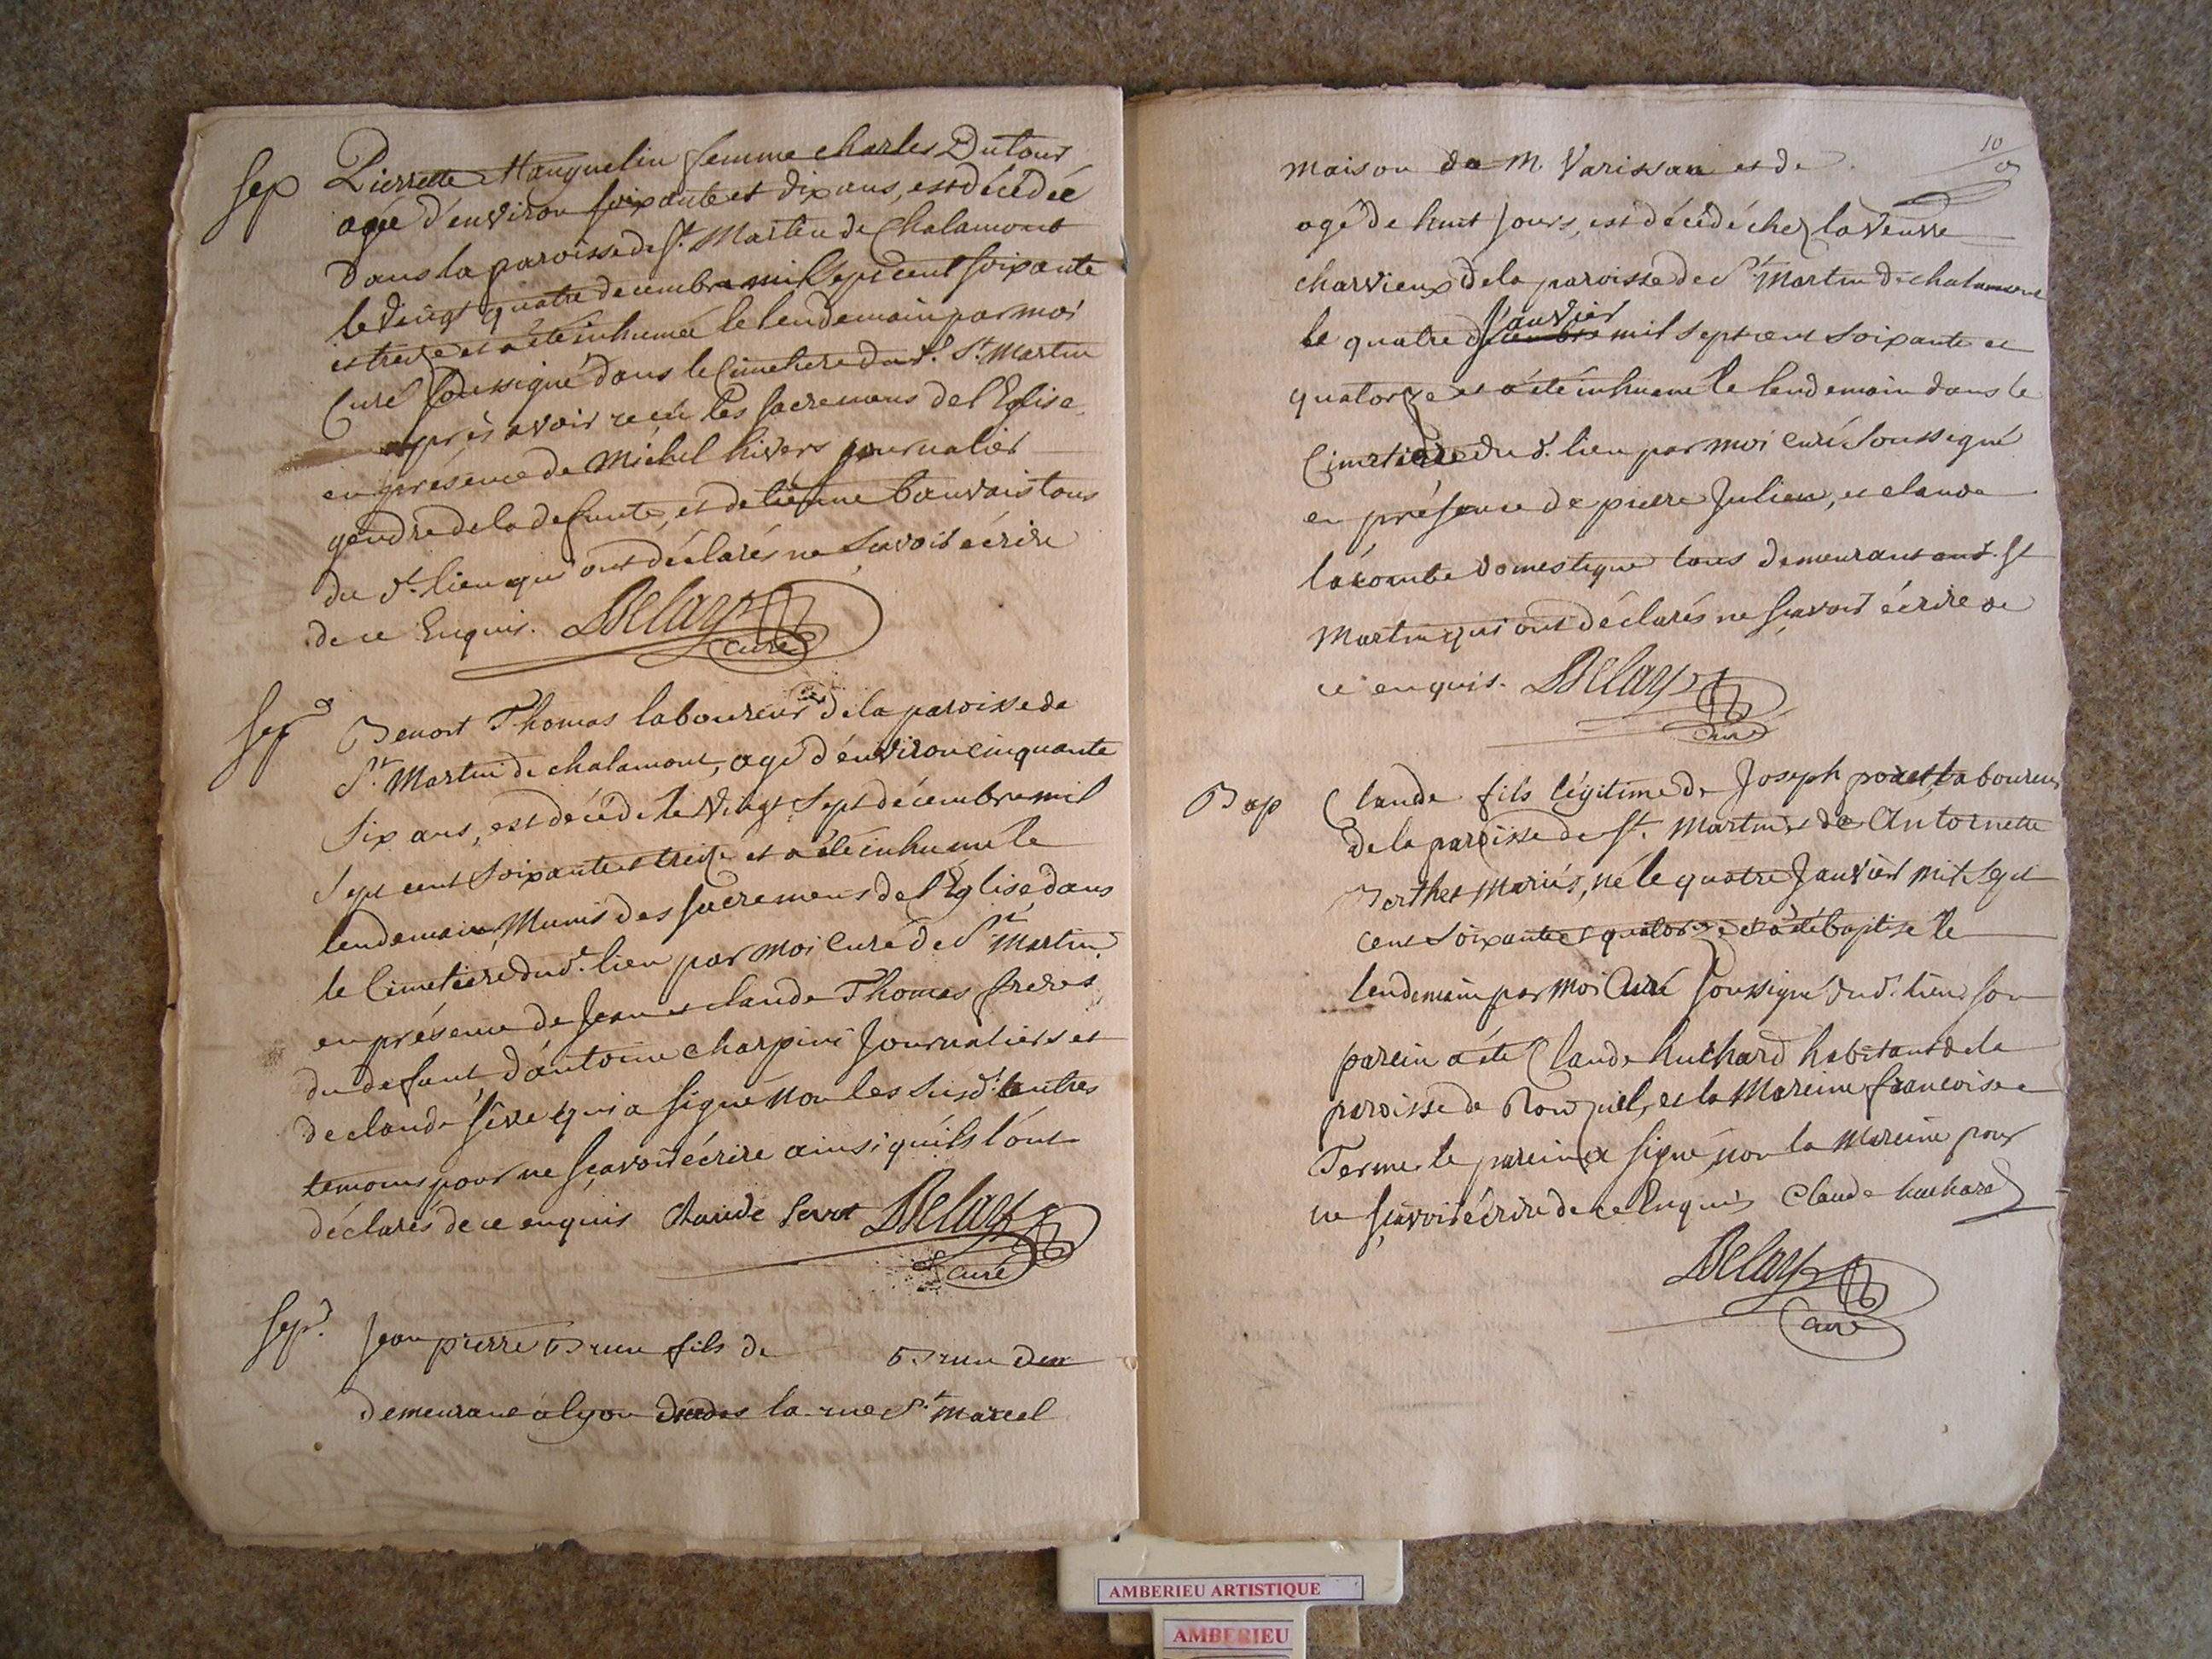 Sep Pierrette Mauguelin femme charles Dutour
agée d'environ soixante et dix ans, est décédée
dans la paroisse de St. Martin de Chalamont
le vingt quatre decembre mil sept cent soixante
et treize et a été inhumée le lendemain par moi
Curé soussigné dans le Cimetiere dud. St. Martin
après avoir reçu les sacremens de l'Eglise
en présence de Michel hivers journalier
gendre de la defunte, et de tienne bauvais tous
du d. lieu qui ont déclarés ne sçavoir écrire
de ce Enquis. Delay
curé
Sep Benoit Thomas laboureur de la paroisse de
St. Martin de chalamont, agé d'environ cinquante
six ans, est décédé le vingt sept décembre mil
sept cent soixante et treize et a été inhumé le
lendemain Munis des sacremens de l'Eglise dans
le Cimetiere dud. lieu par moi Curé de St Martin
en présence de Jean et claude Thomas freres
du defunt, d'antoine charpini Journaliers et
de claude sêve qui a signé non les susd. autres
temoins pour ne sçavoir écrire ainsi qu'ils l'ont
déclarés de ce enquis Claude Delay
curé
Sep. Jean pierre Brun fils de Brun
demeurant a lyon la rue St. marcel
10
maison de M. Varissan et de
agé de huit jours, est décédé chez la veuve
charvieux de la paroisse de St Martin de chalamont
janvier
le quatre decembre mil sept cent soixante et
quatorze et a été inhumé le lendemain dans le
Cimetiere dud. lieu par moi Curé soussigné
en présence de pierre Julien, et claude
lacombe domestique tous demeurant aud. St
Martin qui ont déclarés ne sçavoir écrire de
ce enquis. Delay
Curé
Bap Claude fils légitime de Joseph laboureur
de la paroisse de St. Martin et de Antoinette
Berthet Mariés, né le quatre Janvier mil sept
cent soixante et quatorze et a été baptisé le
lendemain par moi Curé soussigné dud. lieu son
parein a été Claude huchard habitant de la
paroisse de Ronzuel, et la Mareine francoise
Terme le parein a signé, non la Mareine pour
ne sçavoir écrire de ce Enquis Claude huchard
Delay
Curé
AMBERIEU ARTISTIQUE
AMBERIEU